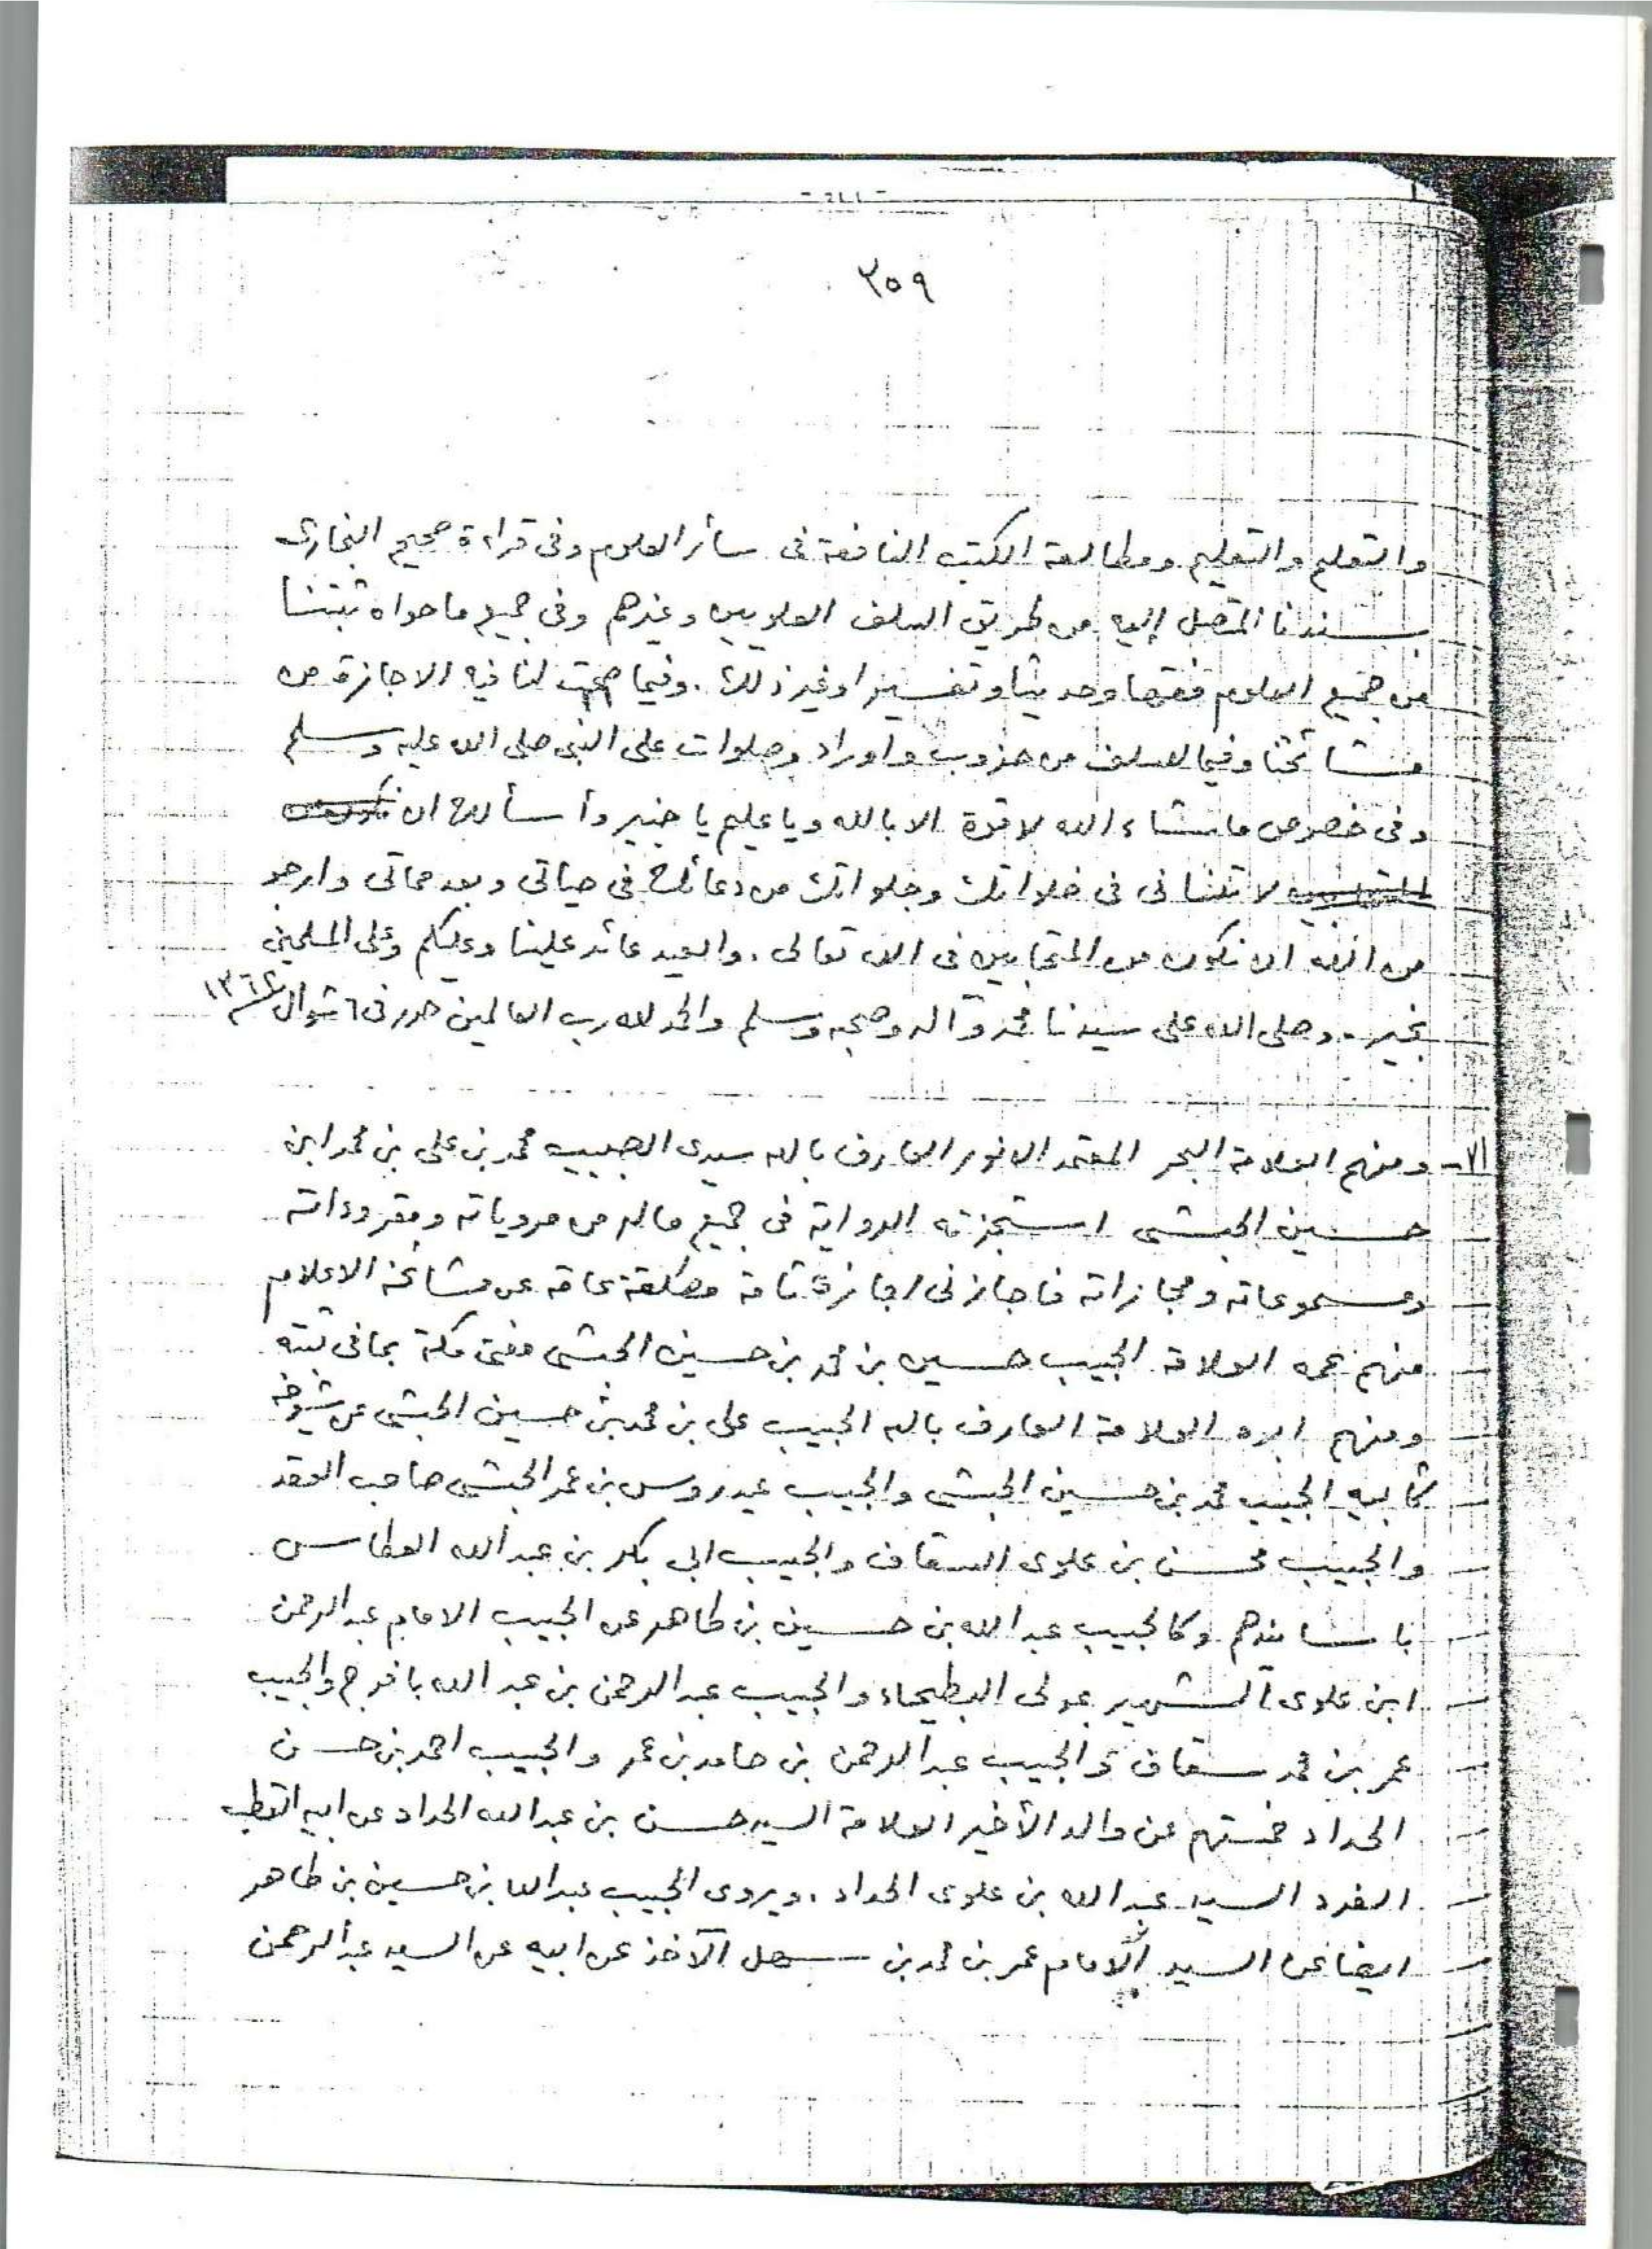 ٣٥٩
والتعلم والتعليم ومطالعة الكتب النافعة فى سائر العلوم وفى قراءة صحيح البخارى
بسندنا المتصل إليه من طريق السلف العلويين وغيرهم وفى جميع ما حواه ثبتنا
من جميع العلوم فقها وحديثا وتفسيرا وغير ذلك . وفيما صحت لنا فيه الاجازة من
مشائخنا وفيما للسلف من حزوب واوراد وصلوات على النبى صلى الله عليه وسلم
وفى خصوص ما شاء الله لا قوة الا بالله ويا عليم يا خبير وأسألك ان
لا تنسانى فى خلواتك وجلواتك من دعائك فى حياتى وبعد مماتى وارجو
من الله ان نكون من المتحابين فى الله تعالى . والعيد عائد علينا وعليكم وعلى المسلمين
بخير . وصلى الله على سيدنا محمد وآله وصحبه وسلم والحمد لله رب العالمين حرر فى ٦ شوال
٧١- ومنهم العلامة البحر المعتمد الانور العارف بالله سيدى الحبيب محمد بن على بن محمد ابن
حسين الحبشى استجزته الرواية فى جميع ماله من مروياته ومقروءاته
ومسموعاته ومجازاته فاجازنى اجازة تامة مطلقة عامة عن مشائخه الاعلام
منهم عمه العلامة الحبيب حسين بن محمد بن حسين الحبشى مفتى مكة بما فى ثبته
ومنهم ابوه العلامة العارف بالله الحبيب على بن محمد بن حسين الحبشى عن شيوخه
كأبيه الحبيب محمد بن حسين الحبشى والحبيب عيدروس بن عمر الحبشى صاحب العقد
والحبيب محسن بن علوى السقاف والحبيب ابى بكر بن عبد الله العطاس
باسانيدهم وكالحبيب عبد الله بن حسين بن طاهر عن الحبيب الامام عبد الرحمن
ابن علوى الشهير بمولى البطيحاء والحبيب عبد الرحمن بن عبد الله بافرج والحبيب
عمر بن محمد سقاف والحبيب عبد الرحمن بن حامد بن عمر والحبيب احمد بن حسن
الحداد خمستهم عن والد الأخير العلامة السيد حسن بن عبد الله الحداد عن ابيه القطب
الفرد السيد عبد الله بن علوى الحداد . ويروى الحبيب عبد الله بن حسين بن طاهر
ايضا عن السيد الامام عمر بن محمد بن سهل الآخذ عن ابيه عن السيد عبد الرحمن